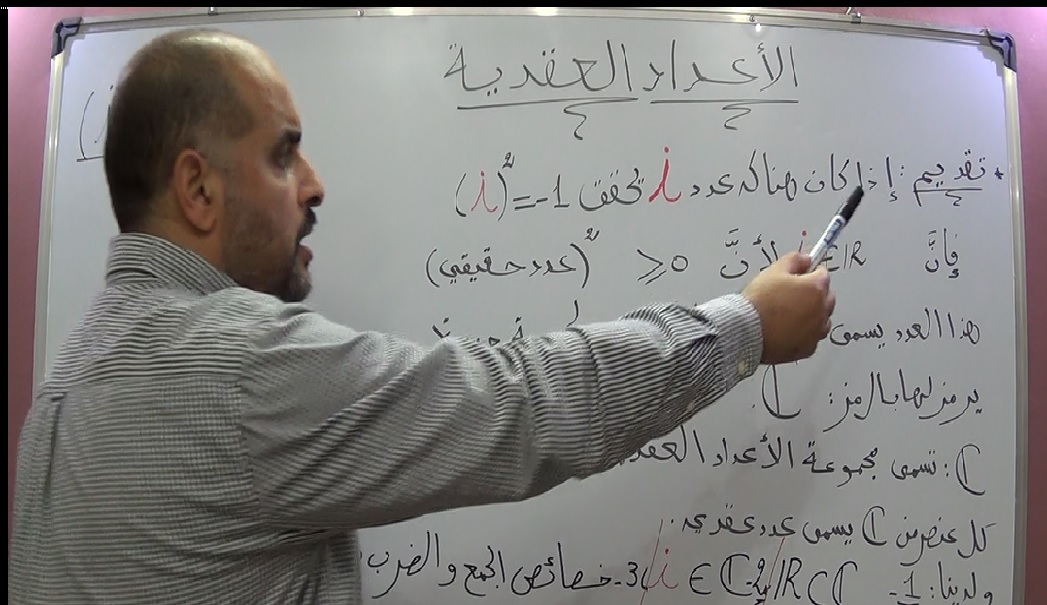 الأعداد العقدية
* تقديم: إذا كان هناك عدد i تحقق (i)² = -1
فإنَّ i ∉ ℝ لأنَّ (عدد حقيقي)² ≥ 0
هذا العدد يسمى
يرمز لها بالرمز: ℂ.
ℂ: تسمى مجموعة الأعداد
كل عنصر من ℂ يسمى عدد عقدي.
ولدينا: 1- ℝ⊂ℂ /2- i ∈ ℂ /3- خصائص الجمع و الضرب